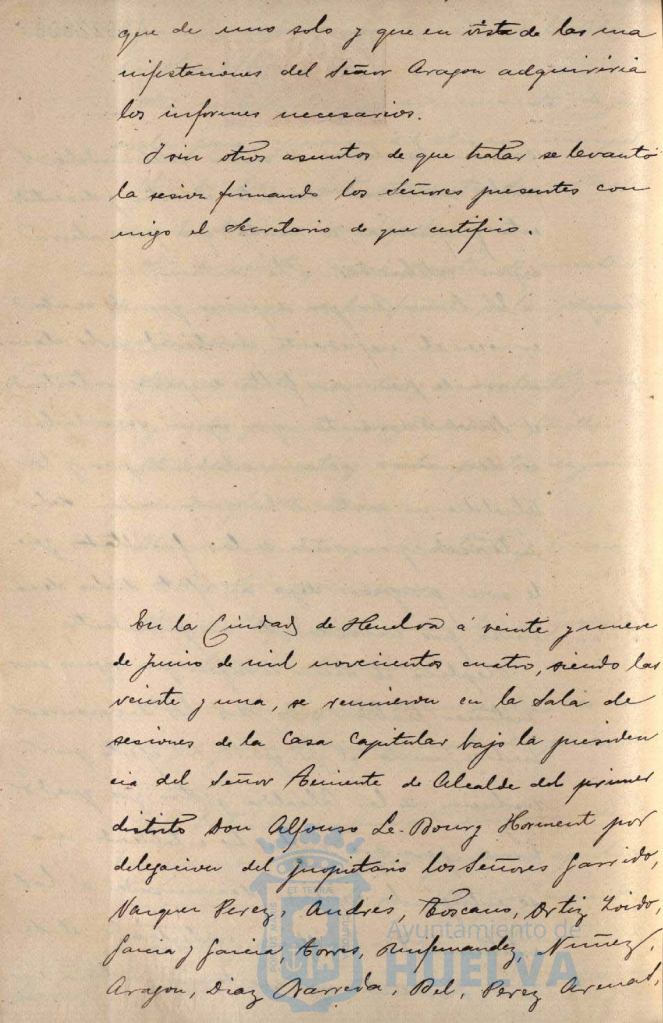 que de uno solo y que en vista de las ma
nifestaciones del Señor Aragon adquiriria
los informes necesarios.
Y sin otros asuntos de que tratar se levantó
la sesion firmando los Señores presentes con
migo el Secretario de que certifico.
En la Ciudad de Huelva á veinte y nueve
de Junio de mil novecientos cuatro, siendo las
veinte y una, se reunieron en la Sala de
sesiones de la Casa Capitular bajo la presiden
cia del Señor Teniente de Alcalde del primer
distrito Don Alfonso Le-Bourg Horment por
delegacion del propietario los Señores Garrido,
Vazquez Perez, Andrés, Toscano, Ortiz Zoido,
Garcia y Garcia, Torres, Nuñez,
Aragon, Diaz Barreda, Bel, Perez Arenas,
Ayuntamiento de
HUELVA